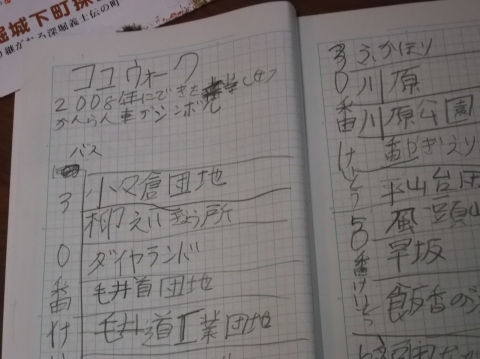 堀城下町探
り継がれる深堀義士伝の町
ココウォーク
2008年にできた
かんらん車がシンボル
バス
30番け
小マ倉団地
柳えいぎょう所
ダイヤランド
毛井首団地
毛井道工業団地
30番けいとう
ふかほり
川原
川原公園
50番けいとう
平山台団
風頭山
早坂
飯香の